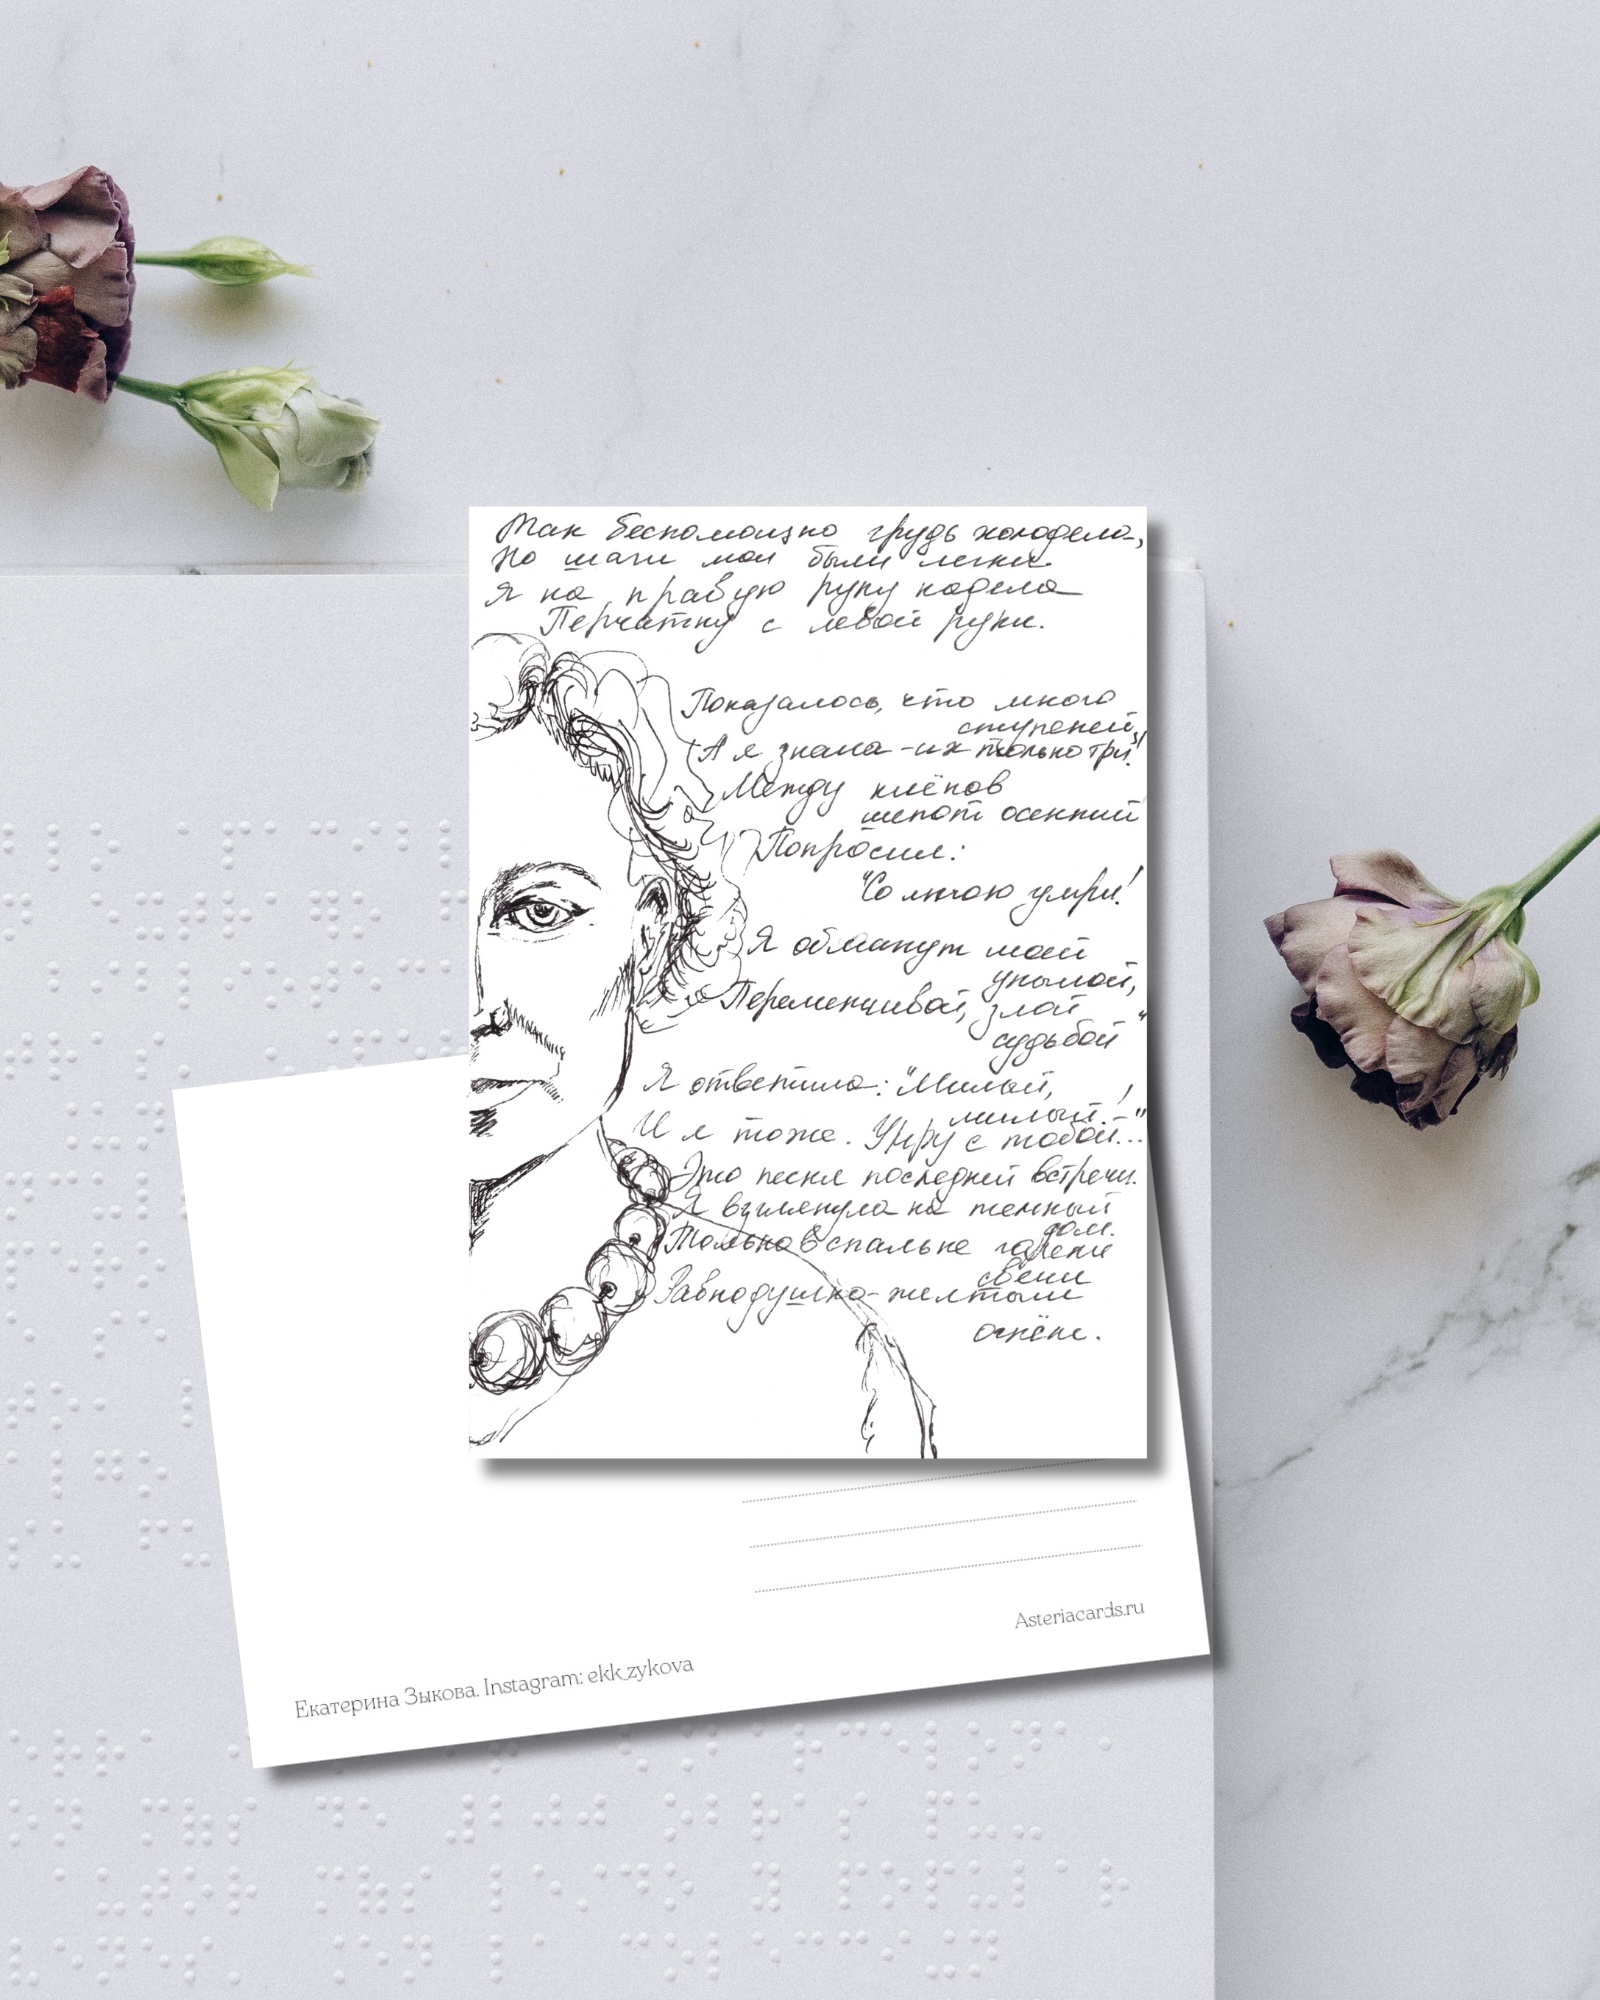 Так беспомощно грудь холодела,
Но шаги мои были легки.
Я на правую руку надела
Перчатку с левой руки.
Показалось, что много
ступеней,
А я знала - их только три!
Между клёнов
шепот осенний
Попросил:
"Со мною умри!
Я обманут моей
унылой,
Переменчивой, злой
судьбой"
Я ответила: "Милый,
милый! -
И я тоже. Умру с тобой..."
Это песня последней встречи.
Я взглянула на темный
дом.
Только в спальне горели
свечи
Равнодушно-желтым
огнём.
Asteriacards.ru
Екатерина Зыкова. Instagram: ekk_zykova